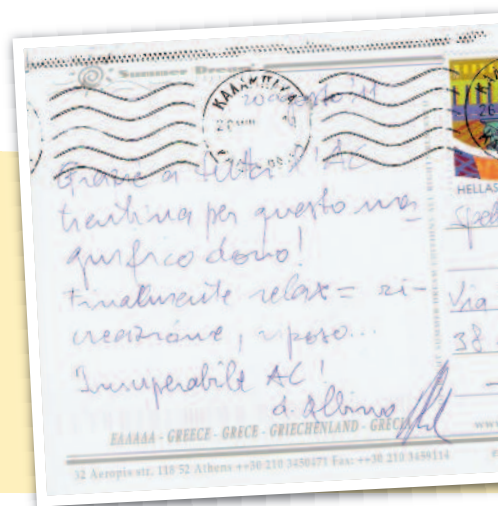 Summer Dream
20 agosto '11
ΚΑΛΑΜΠΑΚΑ
Grazie a tutta l'AC
trentina per questo ma
gnifico dono!
Finalmente relax = ri-
creazione, riposo...
Insuperabile AC!
d. Albino
HELLAS
Sped
Via
38
ΕΛΛΑΔΑ - GREECE - GRECE - GRIECHENLAND - GRECIA
32 Aeropis str. 118 52 Athens ++30 210 3450471 Fax: ++30 210 3458114
www